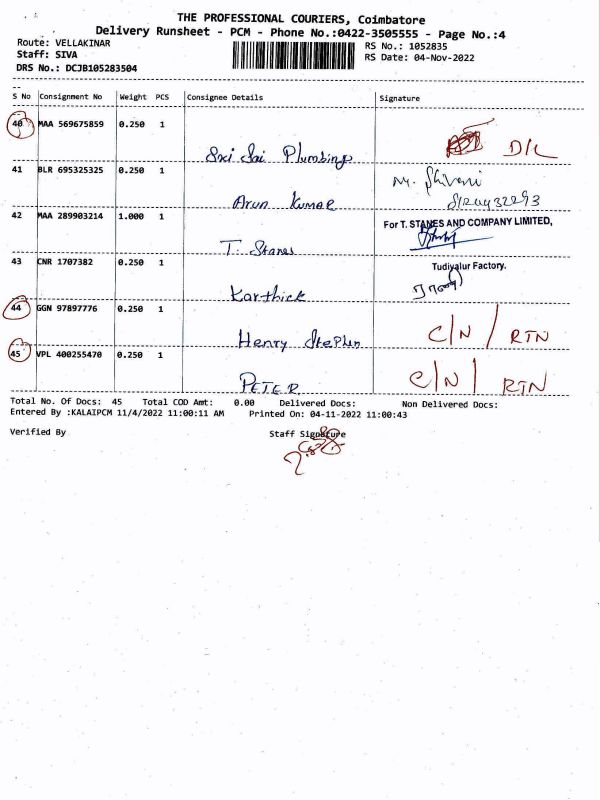 THE PROFESSIONAL COURIERS, Coimbatore
Delivery Runsheet - PCM - Phone No.:0422-3505555 - Page No.:4
Route: VELLAKINAR RS No.: 1052835
Staff: SIVA RS Date: 04-Nov-2022
DRS No.: DCJB105283504
S No Consignment No Weight PCS Consignee Details Signature
40 MAA 569675859 0.250 1
Sri Sai Plumbings D/L
41 BLR 695325325 0.250 1
Arun Kumar
42 MAA 289903214 1.000 1 For T. STANES AND COMPANY LIMITED,
T. Stanes
43 CNR 1707382 0.250 1 Tudiyalur Factory.
Karthick
44 GGN 97897776 0.250 1
Henry Stephen C/N / RTN
45 VPL 400255470 0.250 1
PETER C/N / RTN
Total No. Of Docs: 45 Total COD Amt: 0.00 Delivered Docs: Non Delivered Docs:
Entered By :KALAIPCM 11/4/2022 11:00:11 AM Printed On: 04-11-2022 11:00:43
Verified By Staff Signature